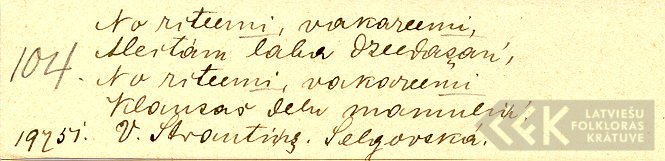 No riteemi, vakareemi,
Meitām laba dzeedašan',
104. No riteemi, vakareemi
Klausas delu mamuliņ'.
19751. V. Strautiņš. Selgovskā.
LATVIEŠU
FOLKLORAS
KRĀTUVE